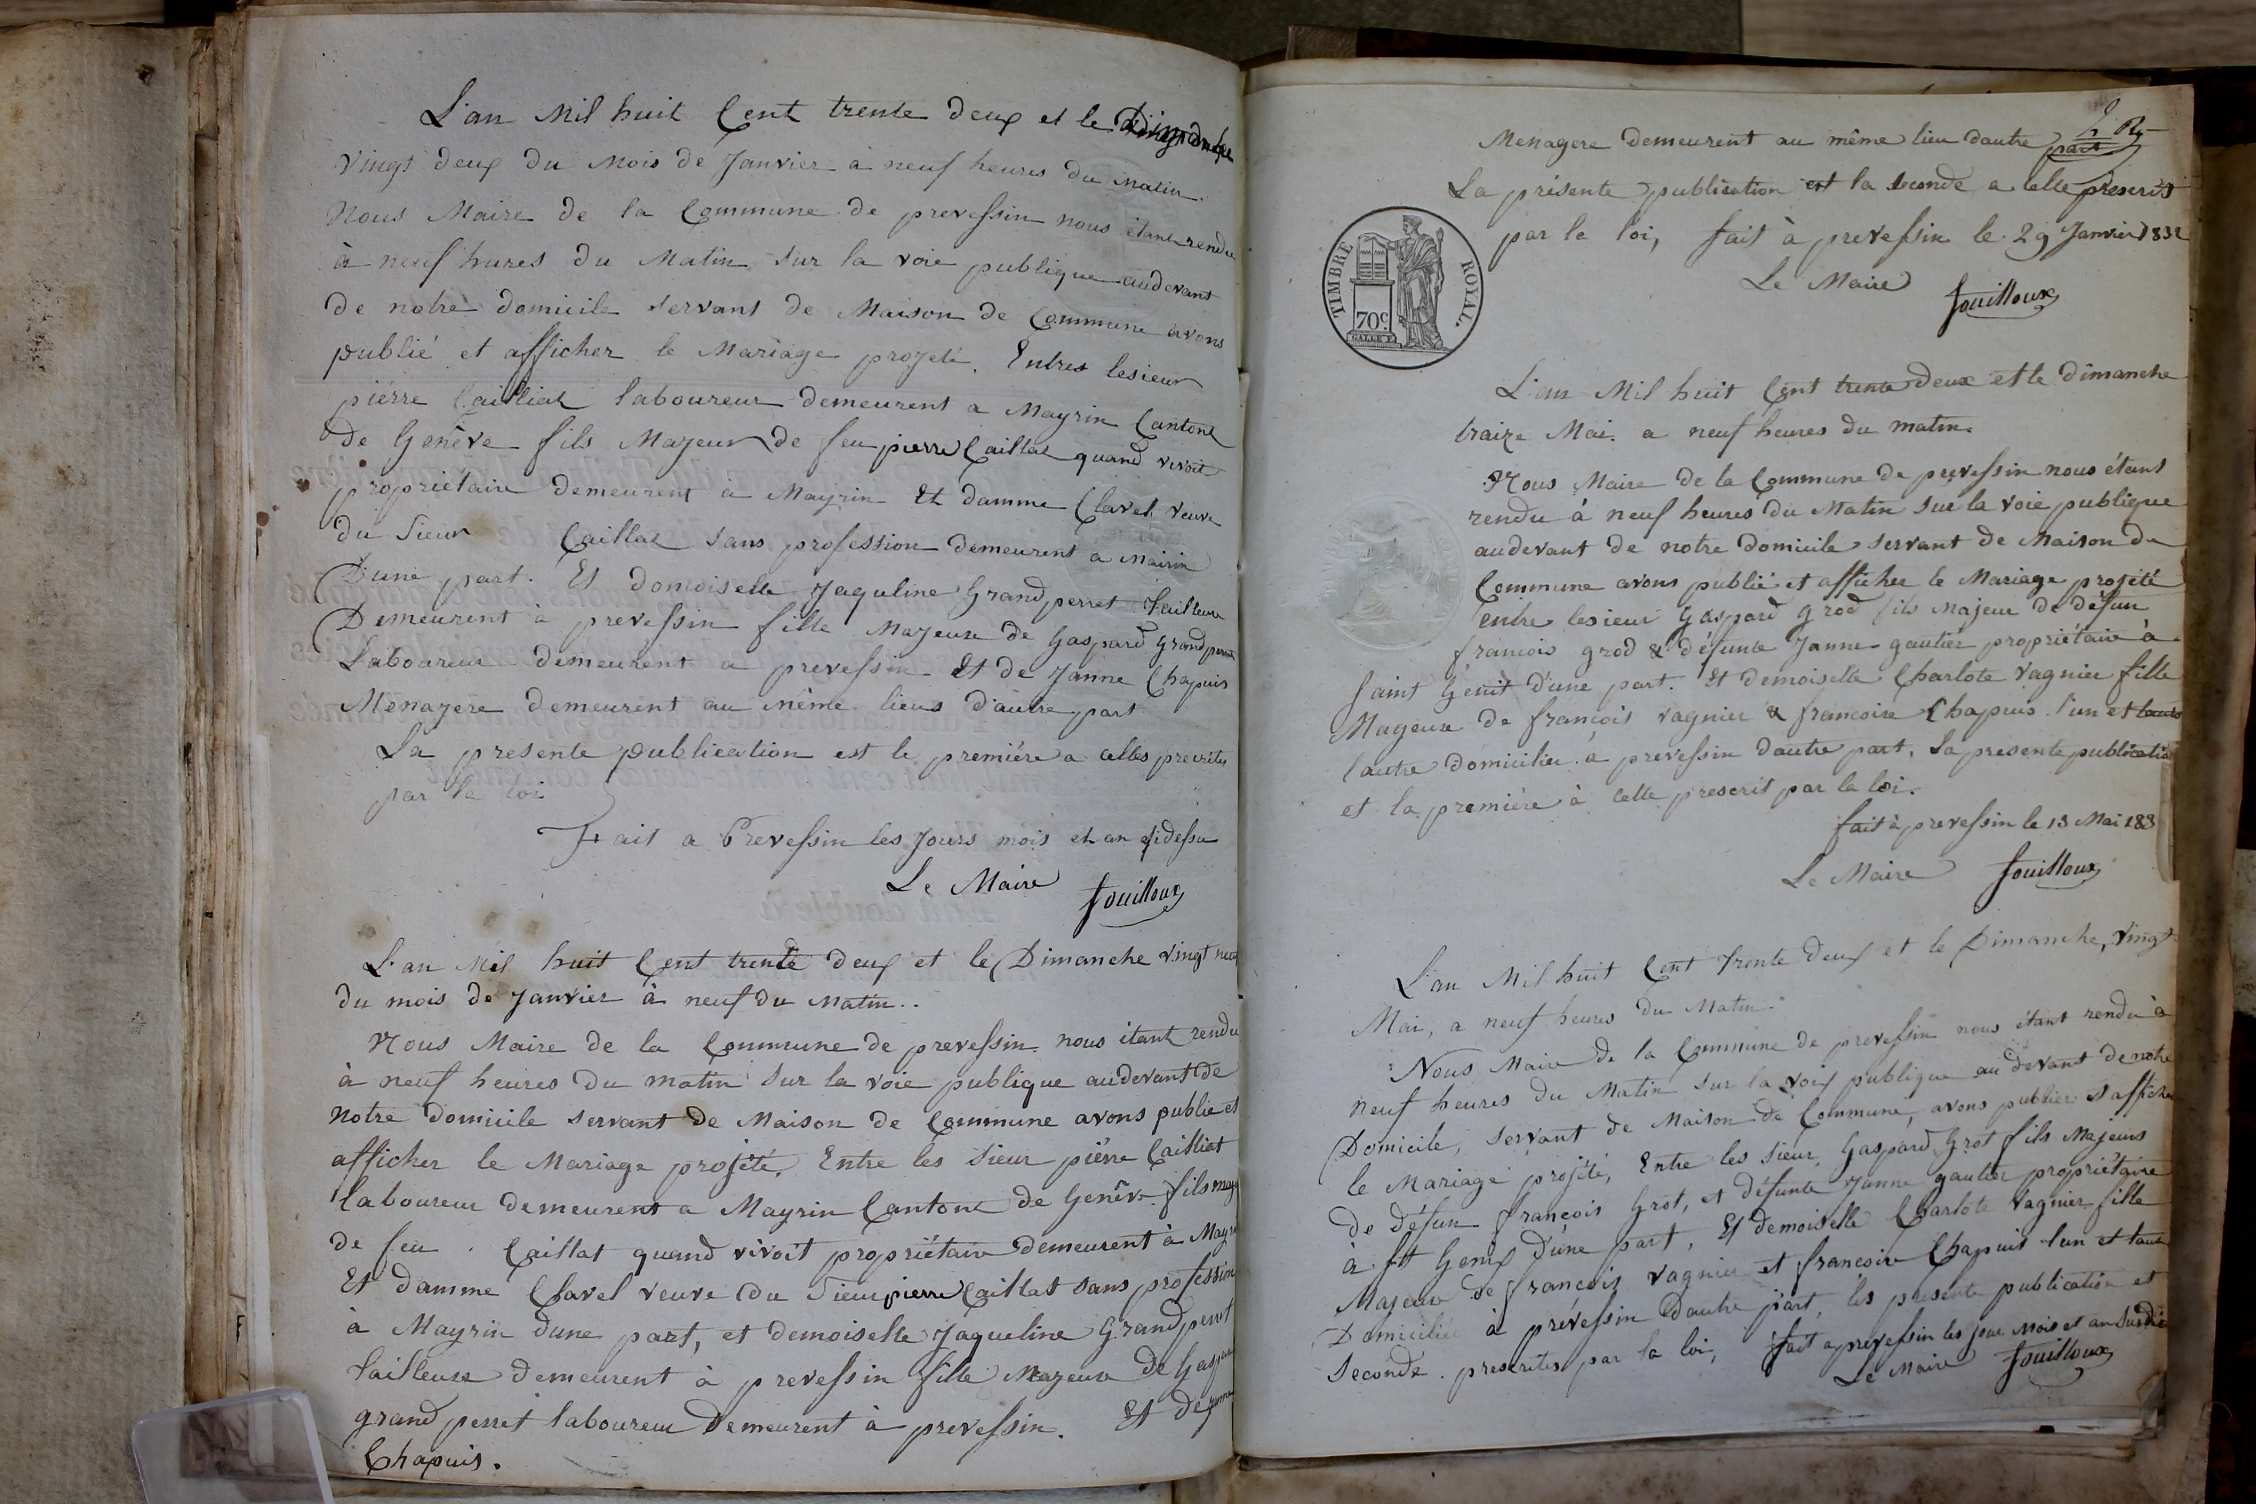 L'an Mil huit Cent trente deux et le Dimanche
Vingt deux du Mois de Janvier à neuf heures du Matin.
Nous Maire de la Commune de prevessin nous étant rendu
à neuf hures du Matin sur la voie publique audevant
de notre domicile servant de Maison de Commune avons
publié et afficher le Mariage projeté. Entres lesieur
piérre Cailliat laboureur demeurent a Mayrin Canton
de Genève fils Majeur de feu pierre Caillat quand vivoit
propriétaire demeurent à Mayrin Et damme Clavel veuve
du Sieur Caillat sans profession demeurent a Mairin
D'une part. Et domoiselle Jaquline Grand perret tailleuse
Demeurent à prevessin fille Majeure de Gaspard Grand perret
Laboureur demeurent a prevessin Et de Janne Chapuis
Ménagere demeurent au même lieus d'autre part
La presente publication est le première a celles precrites
par la loi
Fait a Prevessin les Jours mois et an sidessu
Le Maire fouilloux
L'an Mil huit Cent trente deux et le Dimanche vingt neuf
du mois de Janvier à neuf du Matin..
Nous Maire de la Commune de prevessin nous étant rendu
à neuf heures du matin sur la voie publique audevant de
notre domicile servant de Maison de Commune avons publie et
afficher le Mariage projété. Entre les Sieur piérre Cailliat
laboureur demeurent a Mayrin Cantone de Genêve fils maj
de feu . Caillat quand vivoit propriétaire demeurent à Mayr
Et damme Clavel veuve du Sieur pierre Caillat sans profession
à Mayrin dune part, et demoiselle Jaqueline Grand perret
tailleuse demeurent à prevessin fille Mazeure de Gaspar
grand perret laboureur demeurent à prevessin. Et de Janne
Chapuis.
2
Menagere demeurent au même lieu dautre part
La présente publication est la seconde a celle prescrit
par la loi, fait à prevessin le 29 Janvier 1832
Le Maire fouilloux
TIMBRE ROYAL.
70c
L'an Mil huit Cent trente deux et le dimanche
traize Mai. a neuf heures du matin.
Nous Maire de la Commune de prevessin nous étant
rendu à neuf heures du Matin sur la voie publique
audevant de notre domicile servant de Maison de
Commune avons publié et afficher le Mariage projété
entre lesieur Gaspard grod fils Majeur de défun
francois grod & défunte Janne gautier propriétaire à
Saint Genit d'une part. Et demoiselle Charlote vagnier fille
Mageure de francois vagnier & francoise Chapuis l'un et
lautre domicilier à prevessin dautre part. La presente publicatio
et la première à celle prescrit par la loi.
fait à prevessin le 13 Mai 183
Le Maire fouilloux
L'an Mil huit Cent trente deux et le Dimanche, Vingt
Mai, a neuf heures du Matin.
Nous Maire de la Commune de prevessin nous étant rendu à
neuf heures du Matin sur la voix publique au devant de notre
Domicile, servant de Maison de Commune, avons publier et afficher
le Mariage projété, Entre les sieur Gaspard Grot fils Majeurs
de défun françois Grot, et défunte Janne gautier propriétaire
à St Genix d'une part, Et demoiselle Charlote Vagnier fille
Majeure de francois vagnier et francoise Chapuis l'un et laut
Domiciliés à prévessin dautre part, les presente publication et
Seconde. prescrites par la loi, fait a prevessin les jour Mois et an susdit
Le Maire fouilloux